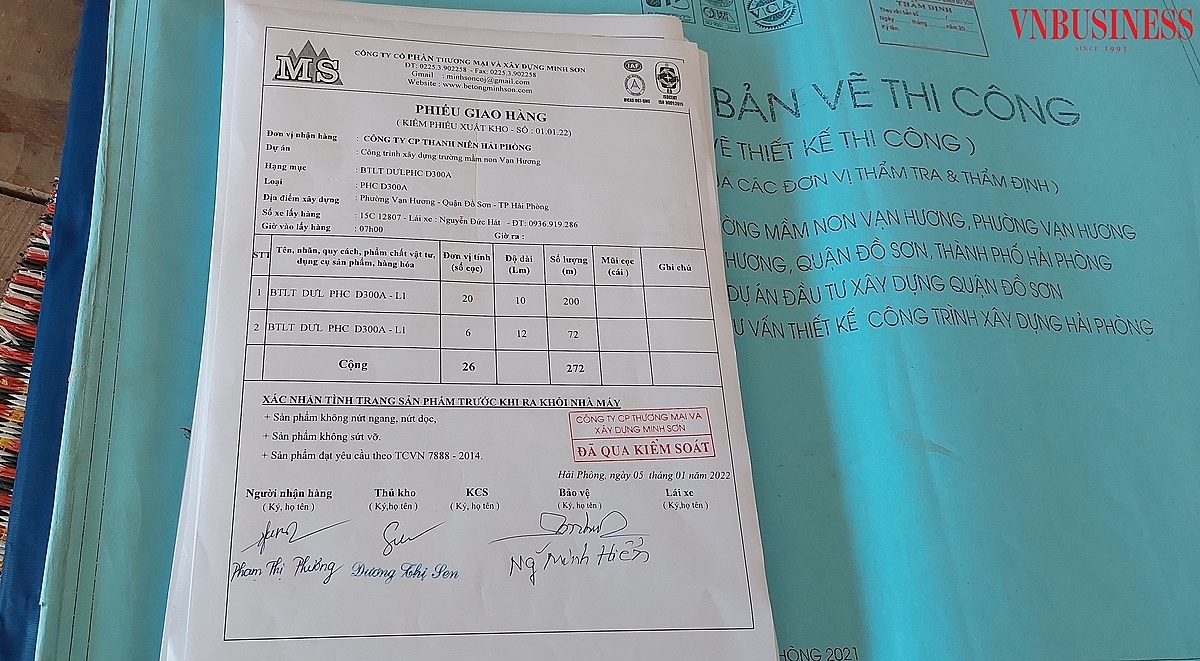 VNBUSINESS
SINCE 1993
THẨM ĐỊNH
MS
CÔNG TY CỔ PHẦN THƯƠNG MẠI VÀ XÂY DỰNG MINH SƠN
ĐT: 0225.3.902258 - Fax: 0225.3.902258
Gmail : minhsoncoj@gmail.com
Website : www.betongminhson.com
PHIẾU GIAO HÀNG
( KIÊM PHIẾU XUẤT KHO - SỐ : 01.01.22)
Đơn vị nhận hàng : CÔNG TY CP THANH NIÊN HẢI PHÒNG
Dự án : Công trình xây dựng trường mầm non Vạn Hương
Hạng mục : BTLT DULPHC D300A
Loại : PHC D300A
Địa điểm xây dựng : Phường Vạn Hương - Quận Đồ Sơn - TP Hải Phòng
Số xe lấy hàng : 15C 12807 - Lái xe : Nguyễn Đức Hát - ĐT: 0936.919.286
Giờ vào lấy hàng : 07h00 Giờ ra :
STT Tên, nhãn, quy cách, phẩm chất vật tư, dụng cụ sản phẩm, hàng hóa Đơn vị tính (số cọc) Độ dài (Lm) Số lượng (m) Mũi cọc (cái) Ghi chú
1 BTLT DƯL PHC D300A - L1 20 10 200
2 BTLT DƯL PHC D300A - L1 6 12 72
Cộng 26 272
XÁC NHẬN TÌNH TRẠNG SẢN PHẨM TRƯỚC KHI RA KHỎI NHÀ MÁY
+ Sản phẩm không nứt ngang, nứt dọc,
+ Sản phẩm không sứt vỡ.
+ Sản phẩm đạt yêu cầu theo TCVN 7888 - 2014.
CÔNG TY CP THƯƠNG MẠI VÀ
XÂY DỰNG MINH SƠN
ĐÃ QUA KIỂM SOÁT
Hải Phòng, ngày 05 tháng 01 năm 2022
Người nhận hàng Thủ kho KCS Bảo vệ Lái xe
( Ký, họ tên ) ( Ký, họ tên ) ( Ký, họ tên ) ( Ký, họ tên ) ( Ký,họ tên )
Phạm Thị Phường Dương Thị Sen Ng Minh Hiển
BẢN VẼ THI CÔNG
VẼ THIẾT KẾ THI CÔNG )
CÁC ĐƠN VỊ THẨM TRA & THẨM ĐỊNH )
MẦM NON VẠN HƯƠNG, PHƯỜNG VẠN HƯƠNG
HƯƠNG, QUẬN ĐỒ SƠN, THÀNH PHỐ HẢI PHÒNG
DỰ ÁN ĐẦU TƯ XÂY DỰNG QUẬN ĐỒ SƠN
VẤN THIẾT KẾ CÔNG TRÌNH XÂY DỰNG HẢI PHÒNG
2021